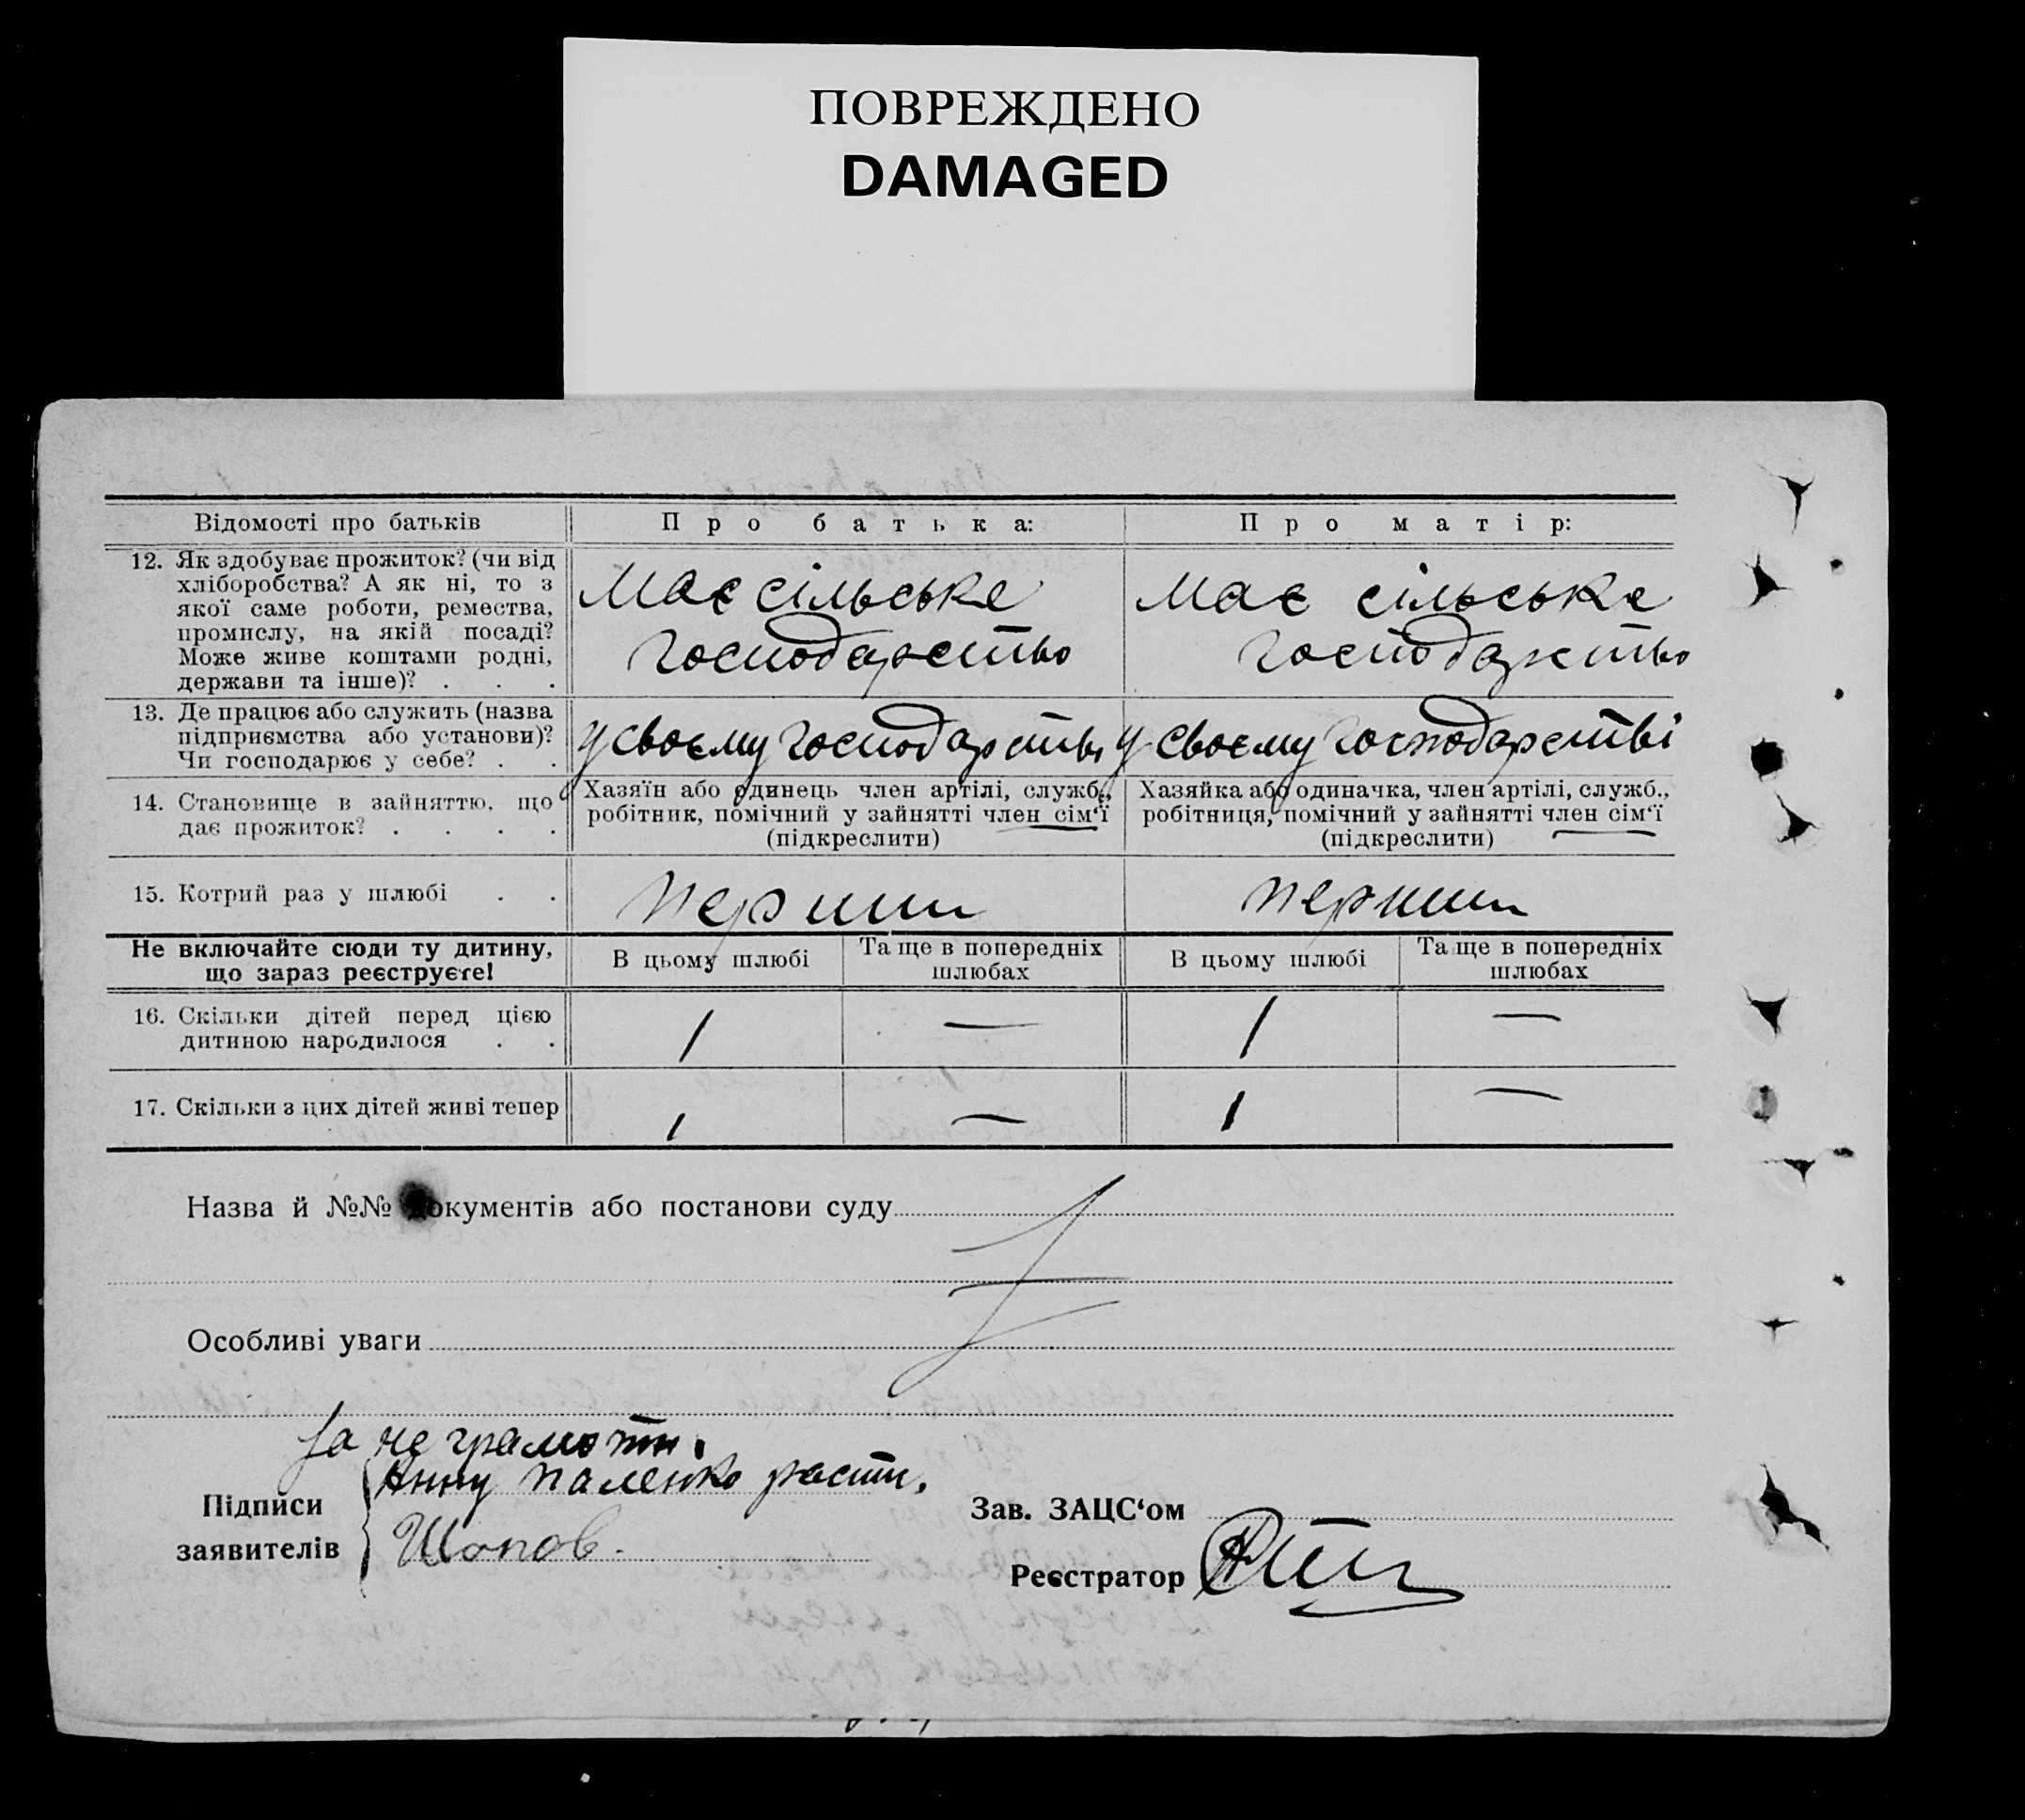 ПОВРЕЖДЕНО
DAMAGED
Відомості про батьків
Про батька:
Про матір:
12. Як здобуває прожиток? (чи від
хліборобства? А як ні, то з
якої саме роботи, ремества,
промислу, на якій посаді?
Може живе коштами родні,
держави та інше)? . . .
Має сільське
господарство
Має сільське
господарство
13. Де працює або служить (назва
підприємства або установи)?
Чи господарює у себе? . .
у своєму господарстві
у своєму господарстві
14. Становище в зайняттю, що
дає прожиток? . . . .
Хазяїн або одинець член артілі, служб.,
робітник, помічний у зайнятті член сім‘ї
(підкреслити)
Хазяйка або одиначка, член артілі, служб.,
робітниця, помічний у зайнятті член сім‘ї
(підкреслити)
15. Котрий раз у шлюбі . .
перший
перший
Не включайте сюди ту дитину,
що зараз реєструєте!
В цьому шлюбі
Та ще в попередніх
шлюбах
В цьому шлюбі
Та ще в попередніх
шлюбах
16. Скільки дітей перед цією
дитиною народилося . .
1 — 1 —
17. Скільки з цих дітей живі тепер
1 — 1 —
Назва й №№ документів або постанови суду
Особливі уваги
За неграмотн.
Анну Паленко расп.
Підписи
заявителів
Шопов.
Зав. ЗАЦС‘ом
Реєстратор